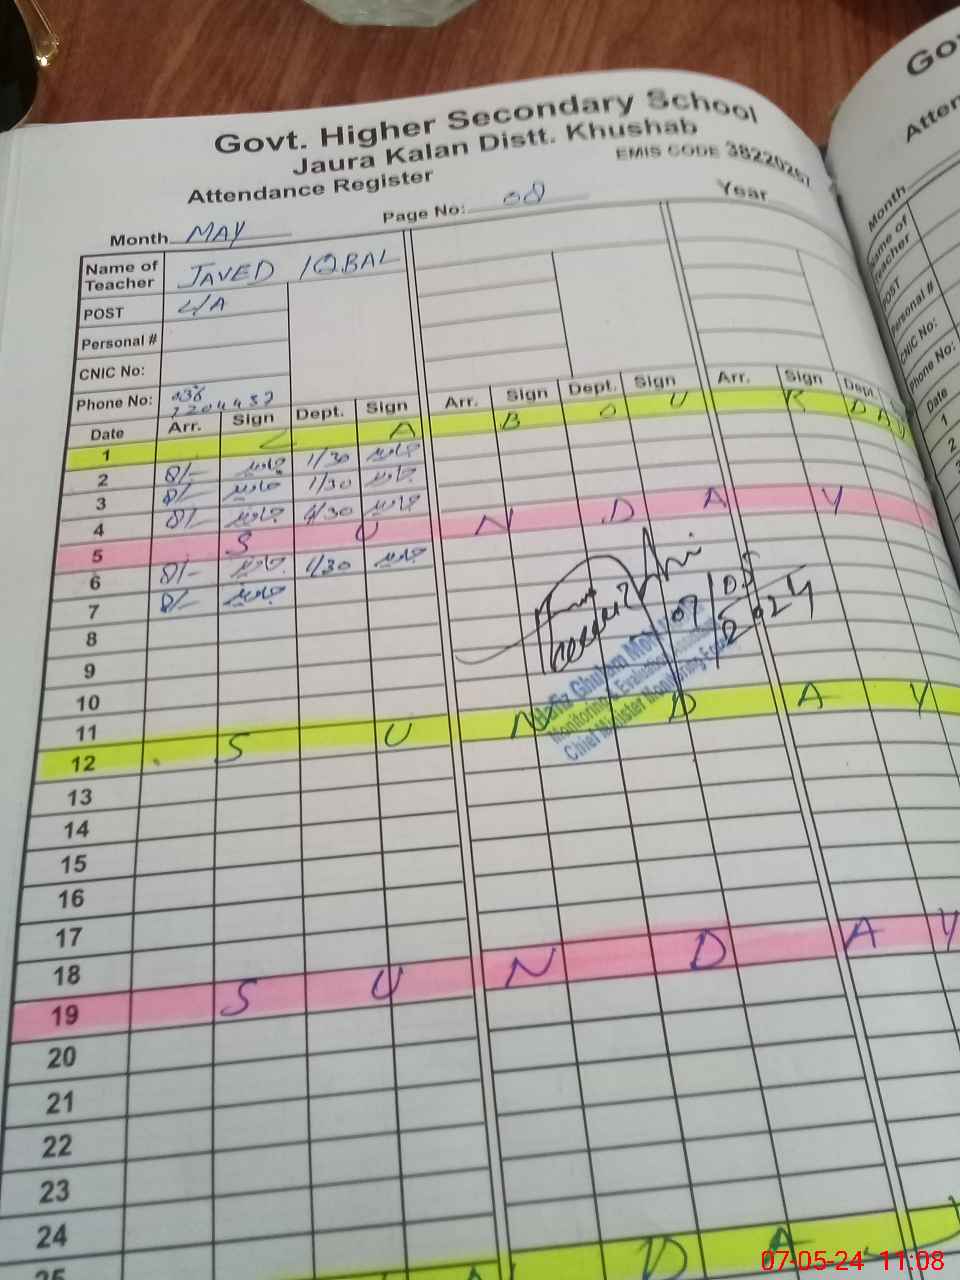 Govt. Higher Secondary School
Jaura Kalan Distt. Khushab
EMIS CODE 38220267
Attendance Register
Month MAY Page No: 08 Year
Name of Teacher JAVED IQBAL
POST
Personal #
CNIC No:
Phone No:
Date Arr. Sign Dept. Sign Arr. Sign Dept. Sign Arr. Sign Dept.
1 L A B O U R D A Y
2 8/- جاوید 1/30 جاوید
3 8/- جاوید 1/30 جاوید
4 8/- جاوید 1/30 جاوید
5 S U N D A Y
6 8/- جاوید 1/30 جاوید
7 8/- جاوید
07/05/2024
8
9
10
Hafiz Ghulam
Monitoring & Evaluation
Chief Minister Monitoring
11
12 S U N D A Y
13
14
15
16
17
18
19 S U N D A Y
20
21
22
23
24
25 N D A
Gov
Atten
Month
Name of
Teacher
POST
Personal #
CNIC No:
Phone No:
Date
1
2
07-05-24 11:08